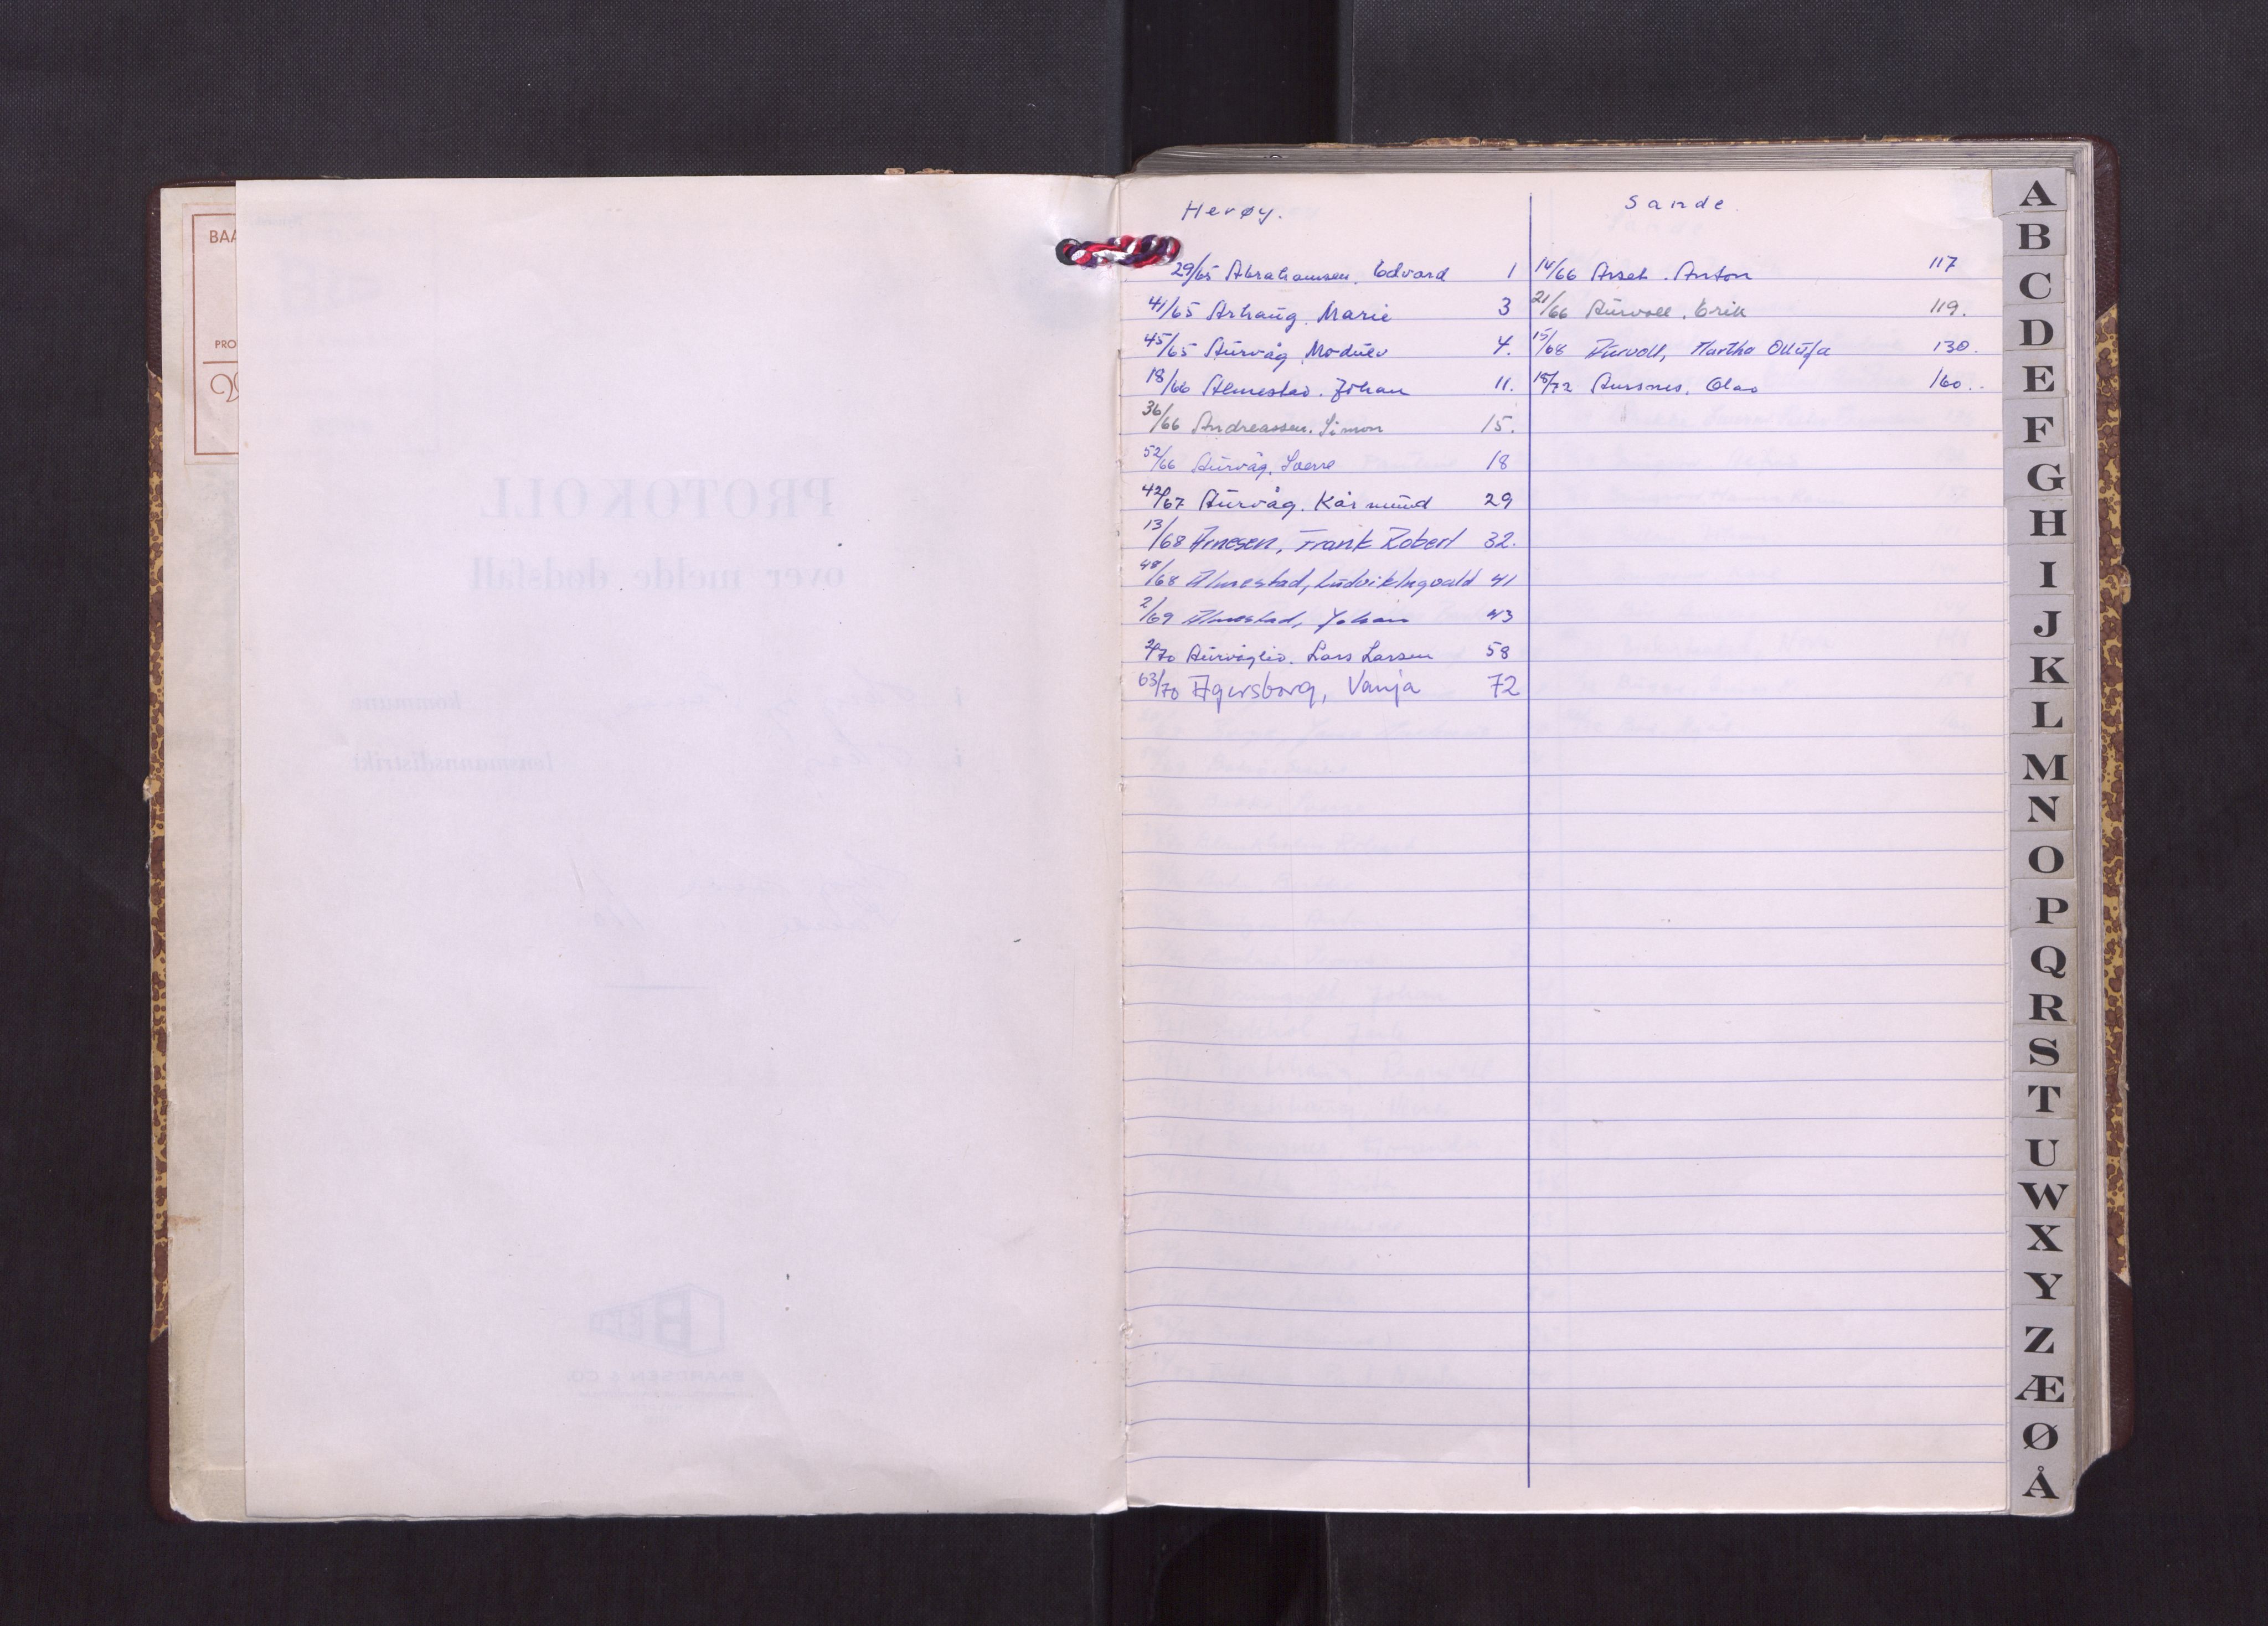 BAA
PRO
PROTOKOLL
over melde dødsfall
i kommune
i lensmannsdistrikt
BAARDSEN & CO.
Herøy.
29/65 Abrahamsen, Edvard 1
41/65 Arhaug, Marie 3
45/65 Aurvåg, Moduev 4.
18/66 Almestad. Johan 11.
36/66 Andreassen. Simon 15.
52/66 Aurvåg. Sverre 18
42/67 Aurvåg. Kåsmund 29
13/68 Arnesen, Frank Robert 32.
48/68 Almestad, Ludvik Ingvald 41
2/69 Almestad, Johan 43
2/70 Aurvåglid. Lars Larsen 58
63/70 Agersborg, Vanja 72
Sande.
14/66 Arset. Anton 117
21/66 Aurvoll. Erik 119.
15/68 Aurvoll, Martha Olufa 130.
15/72 Aursnes, Olav 160..
A
B
C
D
E
F
G
H
I
J
K
L
M
N
O
P
Q
R
S
T
U
W
X
Y
Z
Æ
Ø
Å